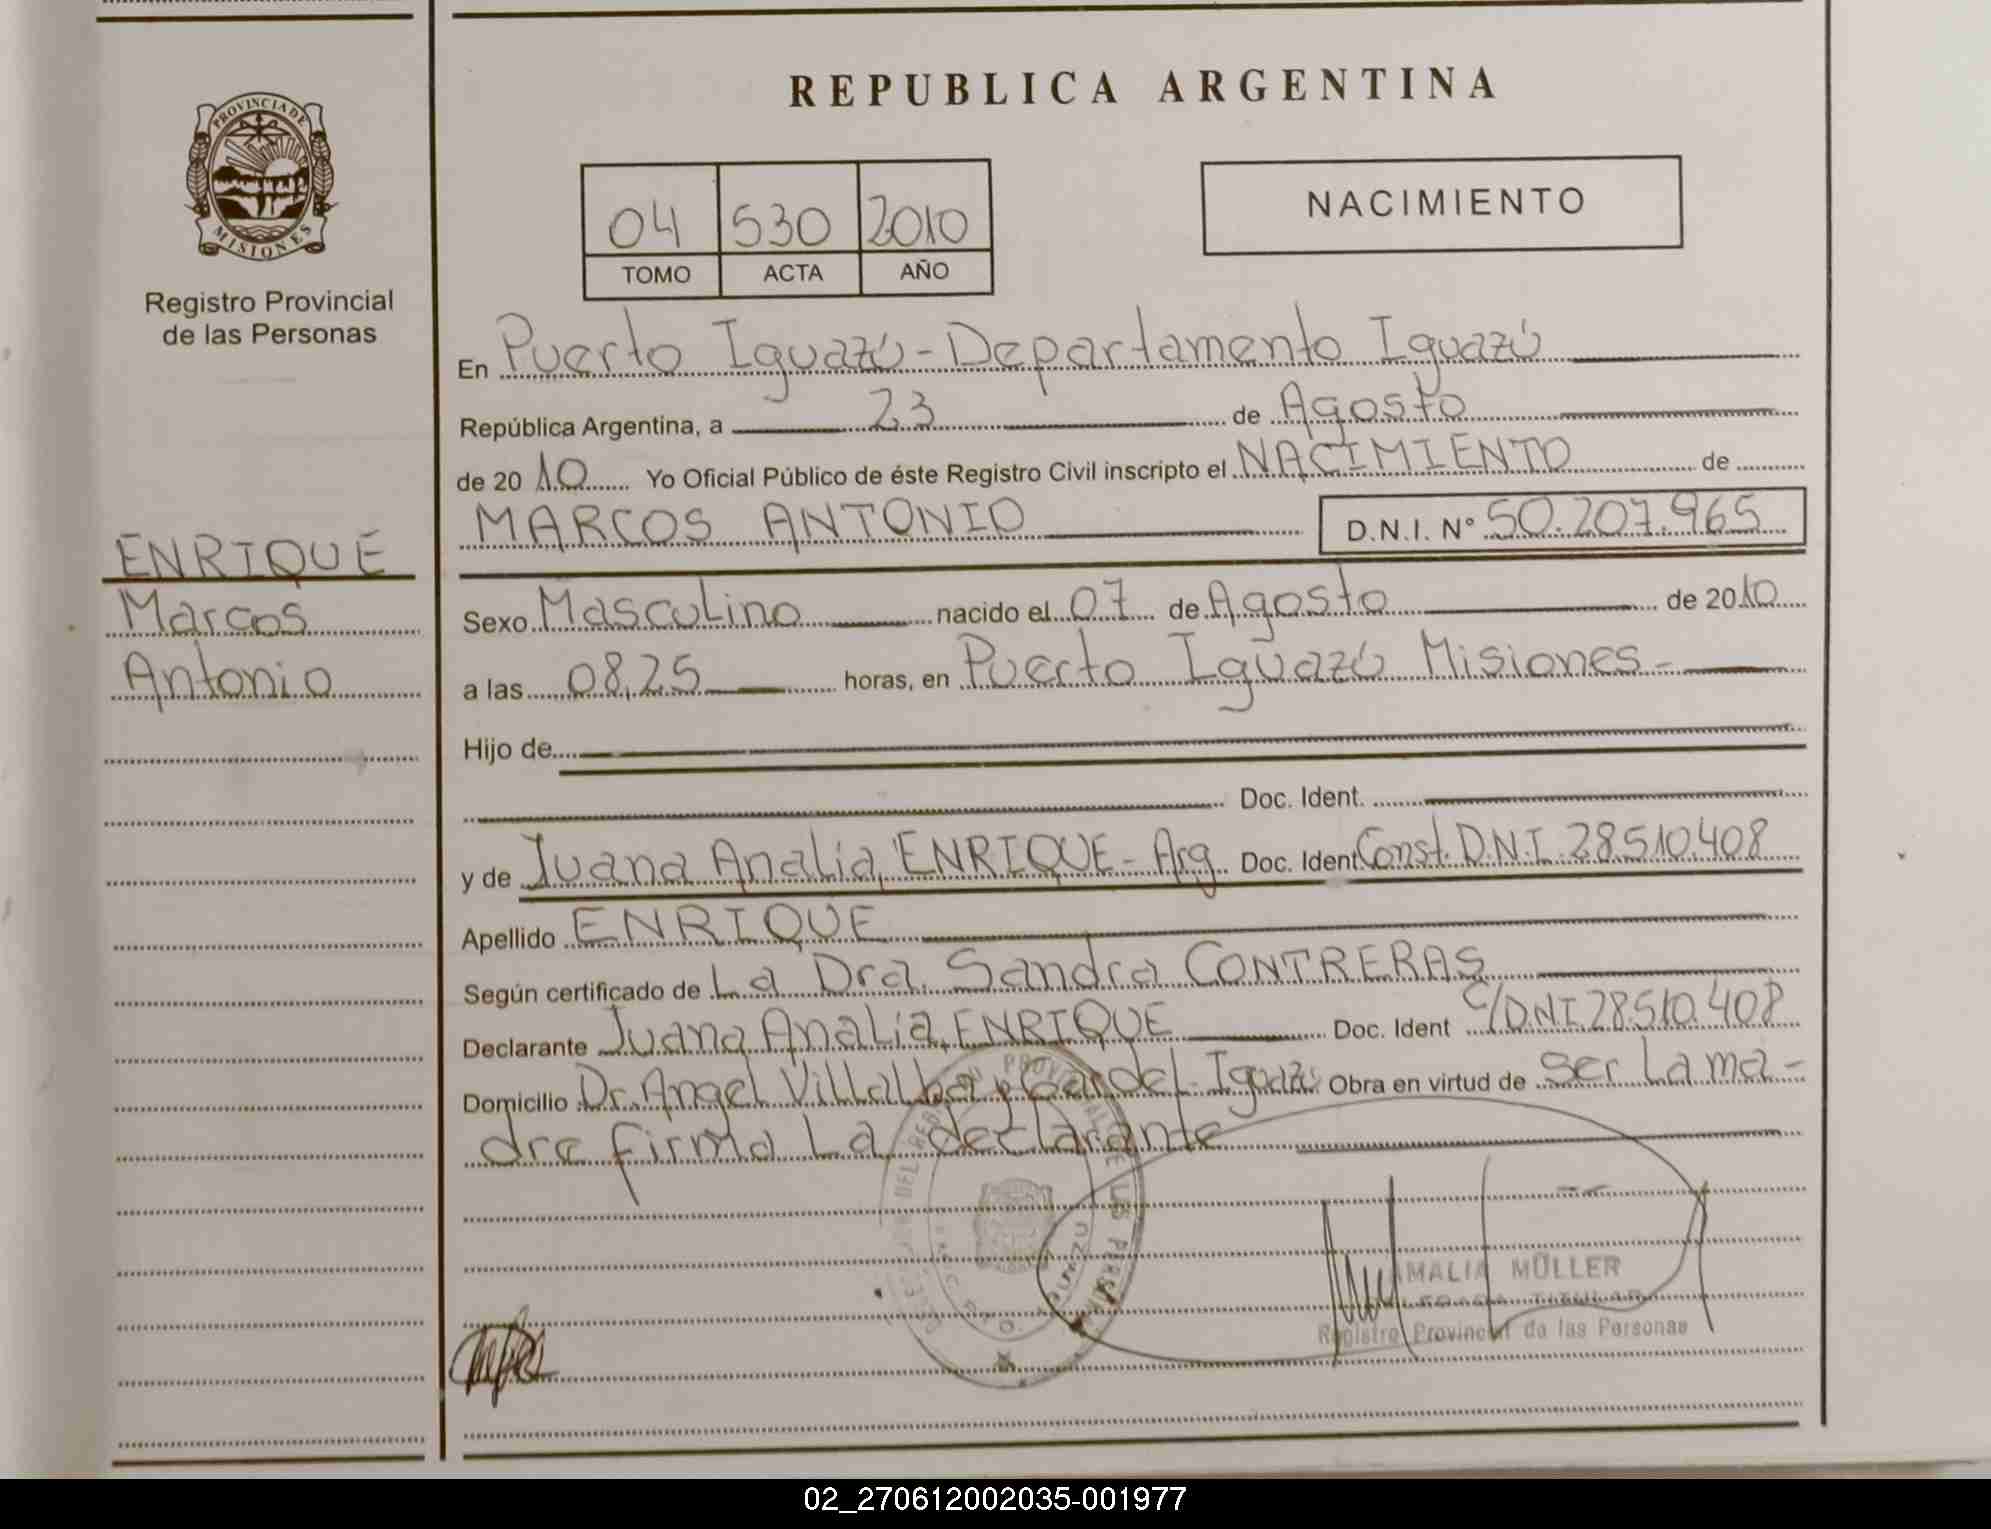 REPUBLICA ARGENTINA
PROVINCIA DE
MISIONES
Registro Provincial
de las Personas
04 530 2010
TOMO ACTA AÑO
NACIMIENTO
En Puerto Iguazú - Departamento Iguazú
República Argentina, a 23 de Agosto
de 2010 Yo Oficial Público de éste Registro Civil inscripto el NACIMIENTO de
MARCOS ANTONIO D.N.I. N° 50.207.965
ENRIQUE
Marcos
Antonio
Sexo Masculino nacido el 07 de Agosto de 2010
a las 08,25 horas, en Puerto Iguazú Misiones-
Hijo de
Doc. Ident.
y de Juana Analia, ENRIQUE - Arg. Doc. Ident Const. D.N.I. 28.510.408
Apellido ENRIQUE
Según certificado de La Dra. Sandra CONTRERAS
Declarante Juana Analia, ENRIQUE Doc. Ident C/DNI 28.510.408
Domicilio Dr. Angel Villalba y Gardel - Iguazú Obra en virtud de ser La ma-
dre firma La declarante
AMALIA MÜLLER
TITULAR
Registro Provincial de las Personas
02_270612002035-001977